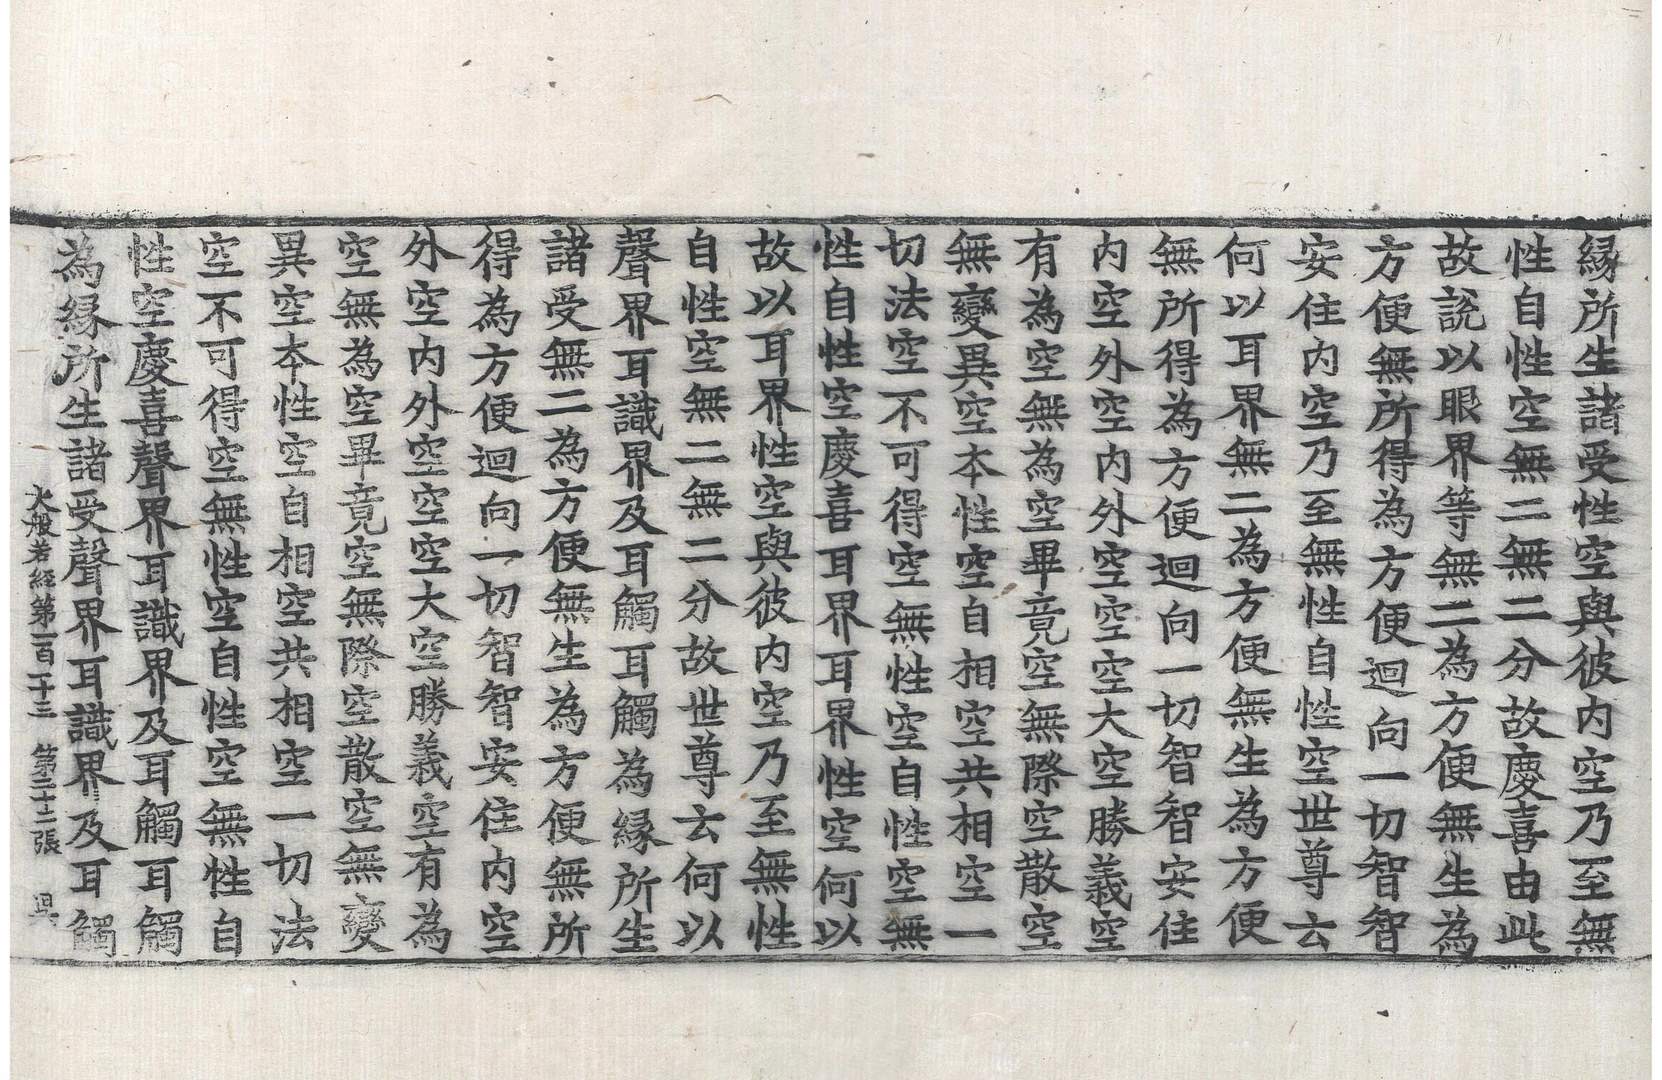 縁所生諸受性空與彼内空乃至無
性自性空無二無二分故慶喜由此
故說以眼界等無二為方便無生為
方便無所得為方便迴向一切智智
安住内空乃至無性自性空世尊云
何以耳界無二為方便無生為方便
無所得為方便迴向一切智智安住
内空外空内外空空空大空勝義空
有為空無為空畢竟空無際空散空
無變異空本性空自相空共相空一
切法空不可得空無性空自性空無
性自性空慶喜耳界耳界性空何以
故以耳界性空與彼内空乃至無性
自性空無二無二分故世尊云何以
聲界耳識界及耳觸耳觸為縁所生
諸受無二為方便無生為方便無所
得為方便迴向一切智智安住内空
外空内外空空空大空勝義空有為
空無為空畢竟空無際空散空無變
異空本性空自相空共相空一切法
空不可得空無性空自性空無性自
性空慶喜聲界耳識界及耳觸耳觸
為縁所生諸受聲界耳識界及耳觸
大般若經第一百二十三 第二十二張